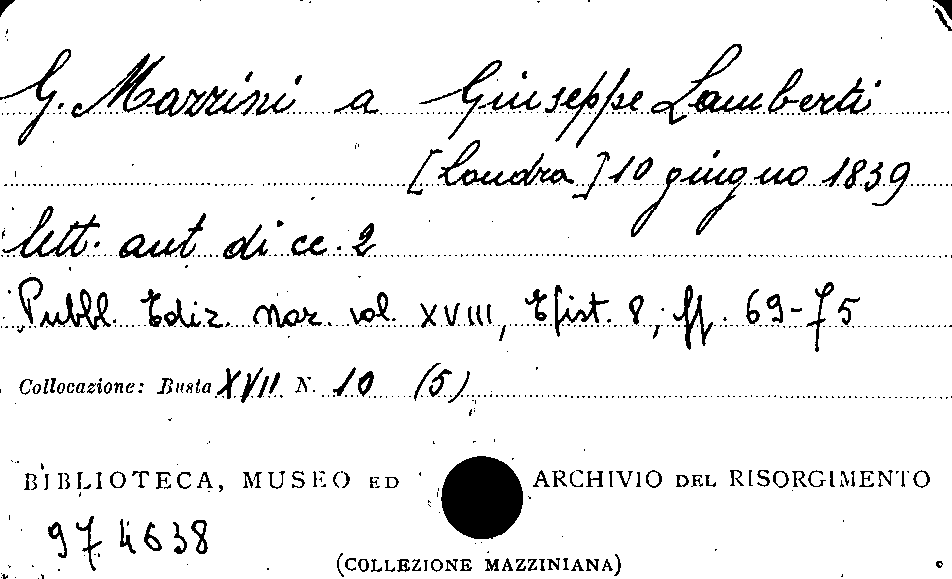 G. Mazzini a Giuseppe Lamberti
[Londra] 10 giugno 1839
lett. aut di cc. 2
Pubbl. Ediz. naz. vol. XVIII, Epist. 8, pp. 69-75
Collocazione: Busta XVII N. 10 (5)
BIBLIOTECA, MUSEO ED ARCHIVIO DEL RISORGIMENTO
974638
(COLLEZIONE MAZZINIANA)